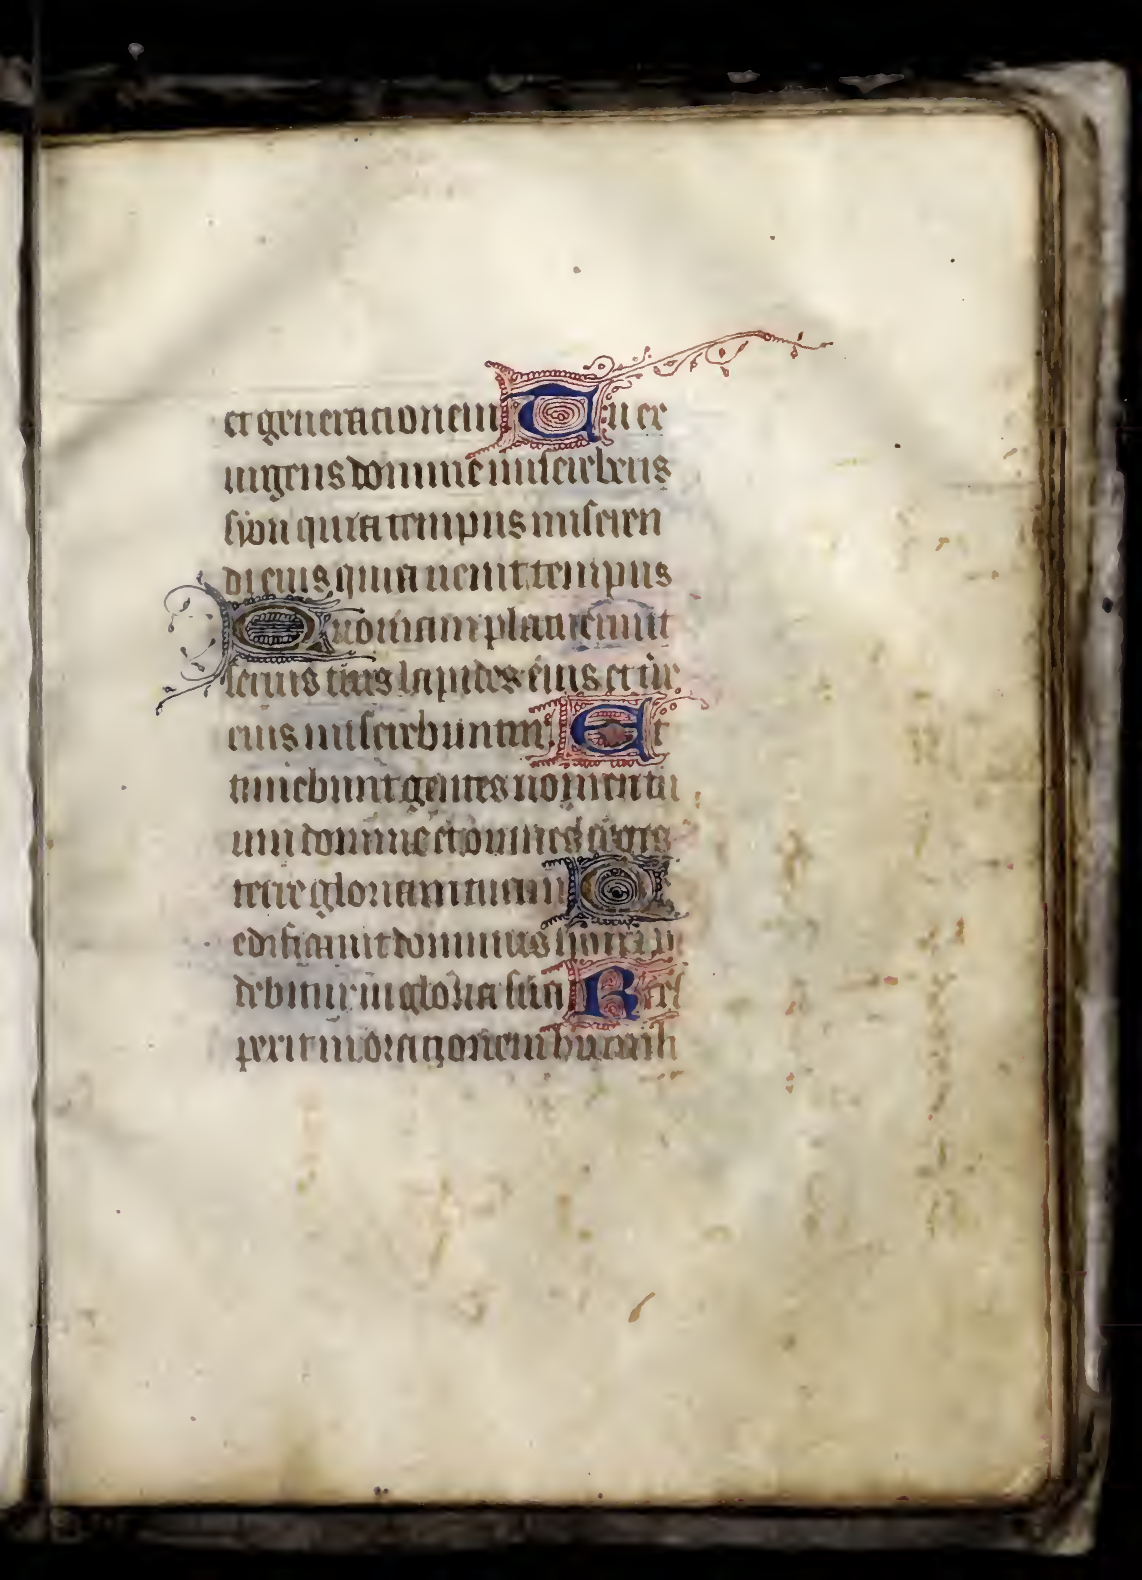 et generationem Tu ex
urgens domine misereberis
syon quia tempus miseren
di eius quia uenit tempus
Quoniam placuerunt
seruis tuis lapides eius et tr̄e
eius miserebuntur Et
timebunt gentes nomen tu
um domine et omnes reges
terre gloriam tuam Q
edificauit dominus syon et vi
debitur in gloria sua Res
pexit in orationem humili